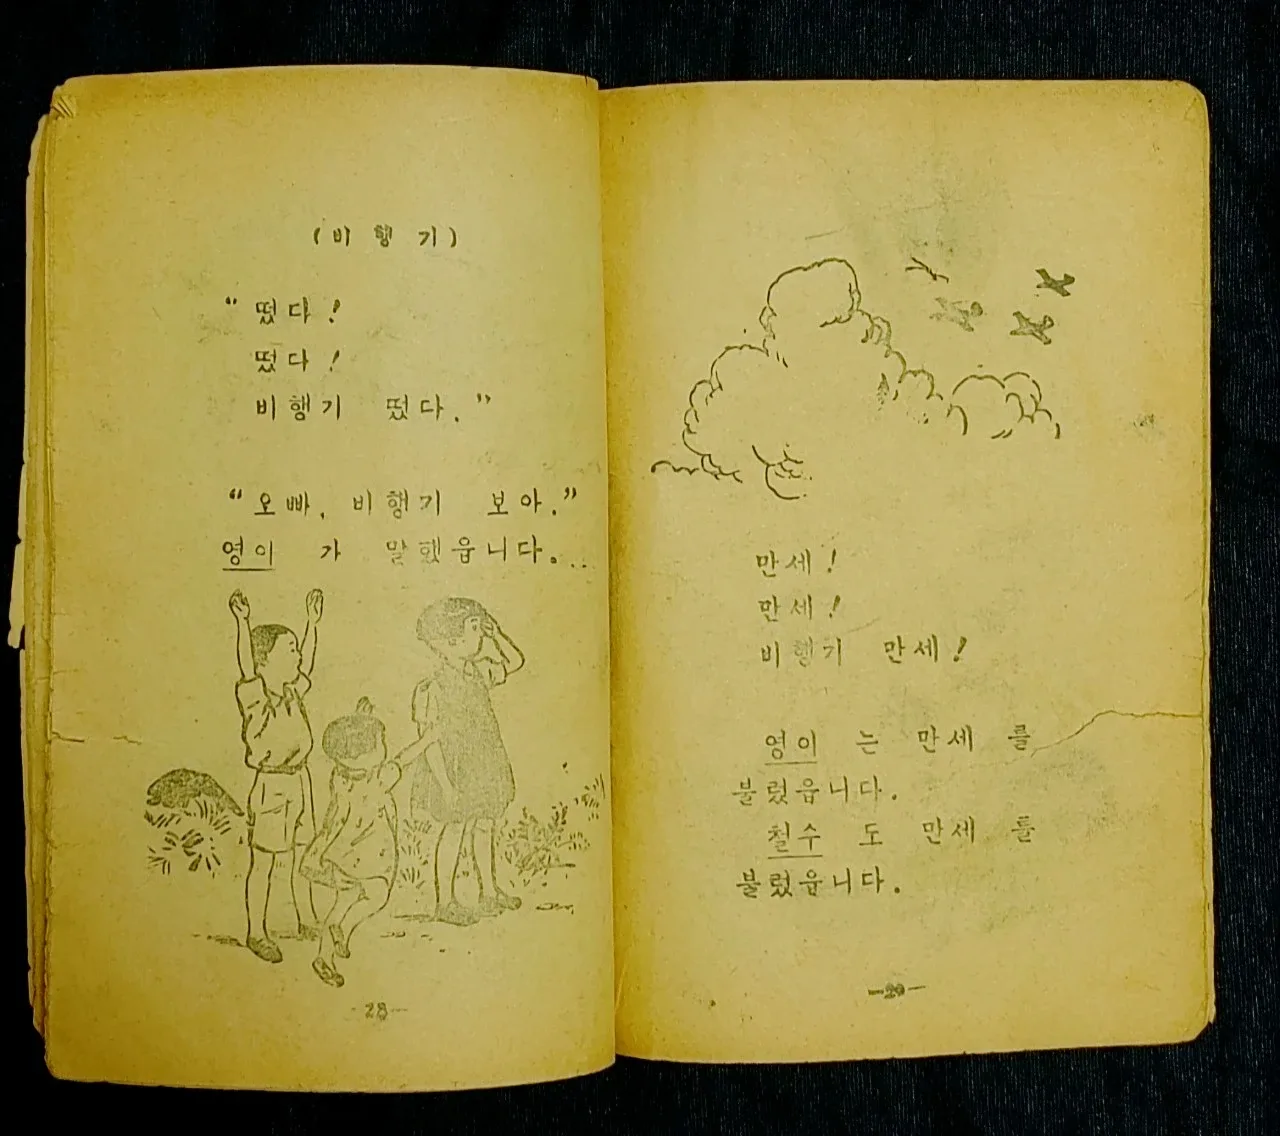 (비 행 기)
“떴다!
떴다!
비행기 떴다.”
“오빠, 비행기 보아.”
영이 가 말했읍니다.
-28-
만세!
만세!
비행기 만세!
영이 는 만세 를
불렀읍니다.
철수 도 만세 를
불렀읍니다.
-29-